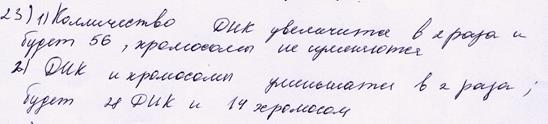 23) 1) Колличество ДНК увеличится в 2 раза и
будет 56, хромосомы не изменяются
2) ДНК и хромосомы уменьшатся в 2 раза;
будет 28 ДНК и 14 хромосом